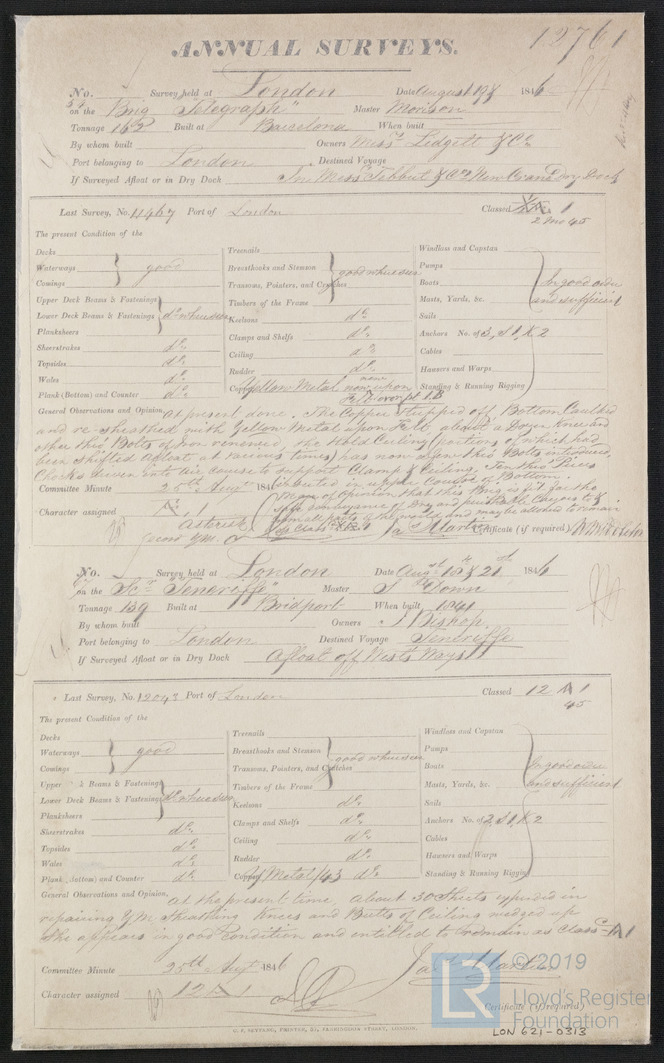 12761
ANNUAL SURVEYS.
No. Survey held at London Date August 19th 1846
on the Brig "Telegraph" Master Morison
Tonnage 162 Built at Barcelona When built
By whom built Owners Messrs Lidgett & Co
Port belonging to London Destined Voyage
If Surveyed Afloat or in Dry Dock In Messrs Tebbut & Co New Crane Dry Dock
Last Survey, No. 11467 Port of London Classed 1
2 Mo 45
The present Condition of the
Decks
Waterways good
Comings
Upper Deck Beams & Fastenings
Lower Deck Beams & Fastenings do where seen
Planksheers
Sheerstrakes do
Topsides do
Wales do
Plank (Bottom) and Counter do
Treenails
Breasthooks and Stemson good where seen
Transoms, Pointers, and Crutches
Timbers of the Frame
Keelsons do
Clamps and Shelfs do
Ceiling do
Rudder do
Copper Yellow Metal now upon
Felt over
Windlass and Capstan
Pumps
Boats In good order
Masts, Yards, &c. and sufficient
Sails
Anchors No. of 3, S1, K2
Cables
Hawsers and Warps
Standing & Running Rigging
General Observations and Opinion, at present done. The Copper stripped off, Bottom Caulked
and re-sheathed with Yellow Metal upon Felt, about a Dozen Knee and
other thro' Bolts of Iron renewed, the Hold Ceiling (portions of which had
been shifted Afloat at various times) has now man thro' Bolts introduced,
Chocks driven into air course to support Clamp & Ceiling, Ten thro' Pieces
inserted in upper Course of Bottom.
Committee Minute 25th Augt 1846
am of Opinion that this Brig is fit for the
safe conveyance of Dry and Perishable Cargoes to &
from all parts of the world and may be allowed to remain
Character assigned 1
Asterisk
Certificate (if required)
No. Survey held at London Date Augst 18th & 21st 1846
on the Scr "Teneriffe" Master S Down
Tonnage 139 Built at Bridport When built 1841
By whom built Owners J Bishop
Port belonging to London Destined Voyage Teneriffe
If Surveyed Afloat or in Dry Dock Afloat off Wests Ways
Last Survey, No. 12042 Port of London Classed 12 A 1
45
The present Condition of the
Decks
Waterways good
Comings
Upper Beams & Fastenings
Lower Deck Beams & Fastenings do where seen
Planksheers
Sheerstrakes do
Topsides do
Wales do
Plank (Bottom) and Counter do
Treenails
Breasthooks and Stemson good where seen
Transoms, Pointers, and Crutches
Timbers of the Frame
Keelsons do
Clamps and Shelfs do
Ceiling do
Rudder do
Copper Y Metal /43 do
Windlass and Capstan
Pumps
Boats In good order
Masts, Yards, &c. and sufficient
Sails
Anchors No. of 2, S1, K2
Cables
Hawsers and Warps
Standing & Running Rigging
General Observations and Opinion, at the present time about 30 Sheets expended in
repairing YM Sheathing Knees and Butts of Ceiling wedged up
She appears in good Condition and entitled to remain as Classd A1
Committee Minute 25th Augt 1846
Character assigned 12 A 1
Certificate (if required)
C. F. SEYFANG, PRINTER, 57, FARRINGDON STREET, LONDON.
© 2019
LR Lloyd's Register
Foundation
LON 621-0313